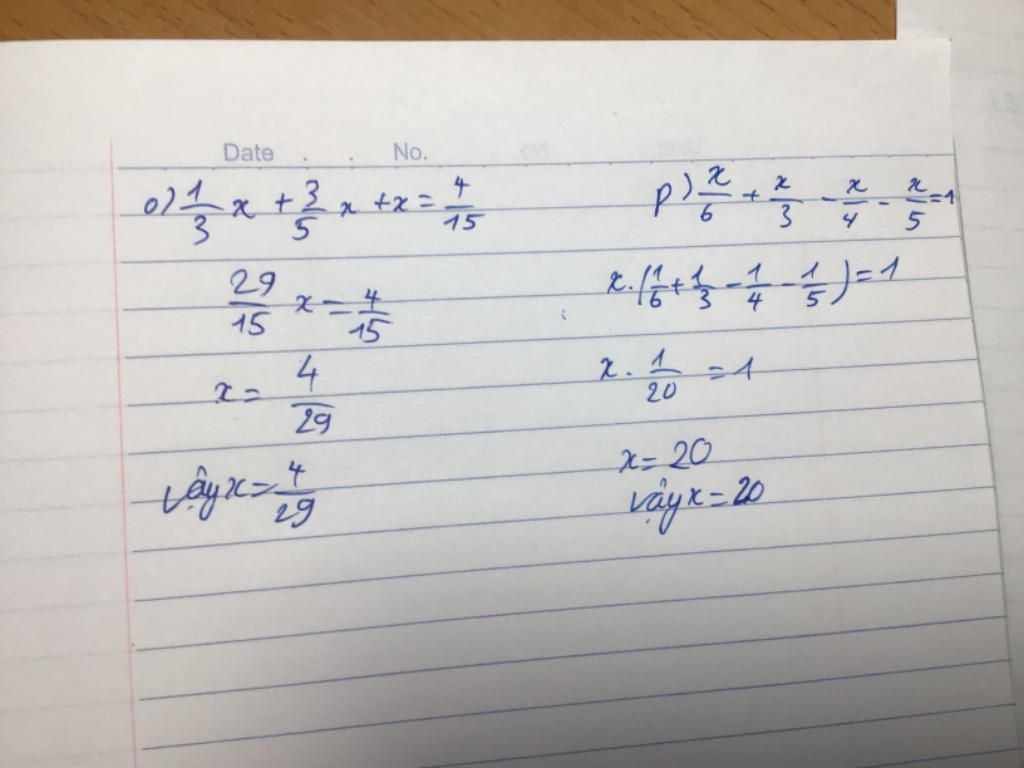 Date . . No.
o) 1/3 x + 3/5 x + x = 4/15
29/15 x = 4/15
x = 4/29
Vậy x = 4/29
p) x/6 + x/3 - x/4 - x/5 = 1
x. (1/6 + 1/3 - 1/4 - 1/5) = 1
x. 1/20 = 1
x = 20
Vậy x = 20